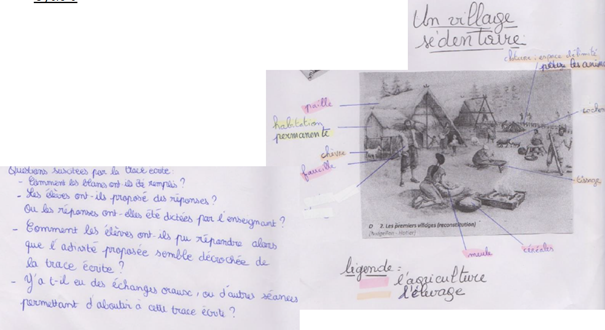 Un village
sédentaire
clôture : espace délimité
pour les
paille
habitation
permanente
chèvre
faucille
tissage
D 2. Les premiers villages (reconstitution)
meule
céréales
légende :
l'agriculture
l'élevage
Questions suscitées par la trace écrite :
- Comment les blancs ont-ils été remplis ?
- Les élèves ont-ils proposé des réponses ?
Ou les réponses ont-elles été dictées par l'enseignant ?
- Comment les élèves ont-ils pu répondre alors
que l'activité proposée semble décrochée de
la trace écrite ?
- Y a t-il eu des échanges oraux, ou d'autres séances
permettant d'aboutir à cette trace écrite ?